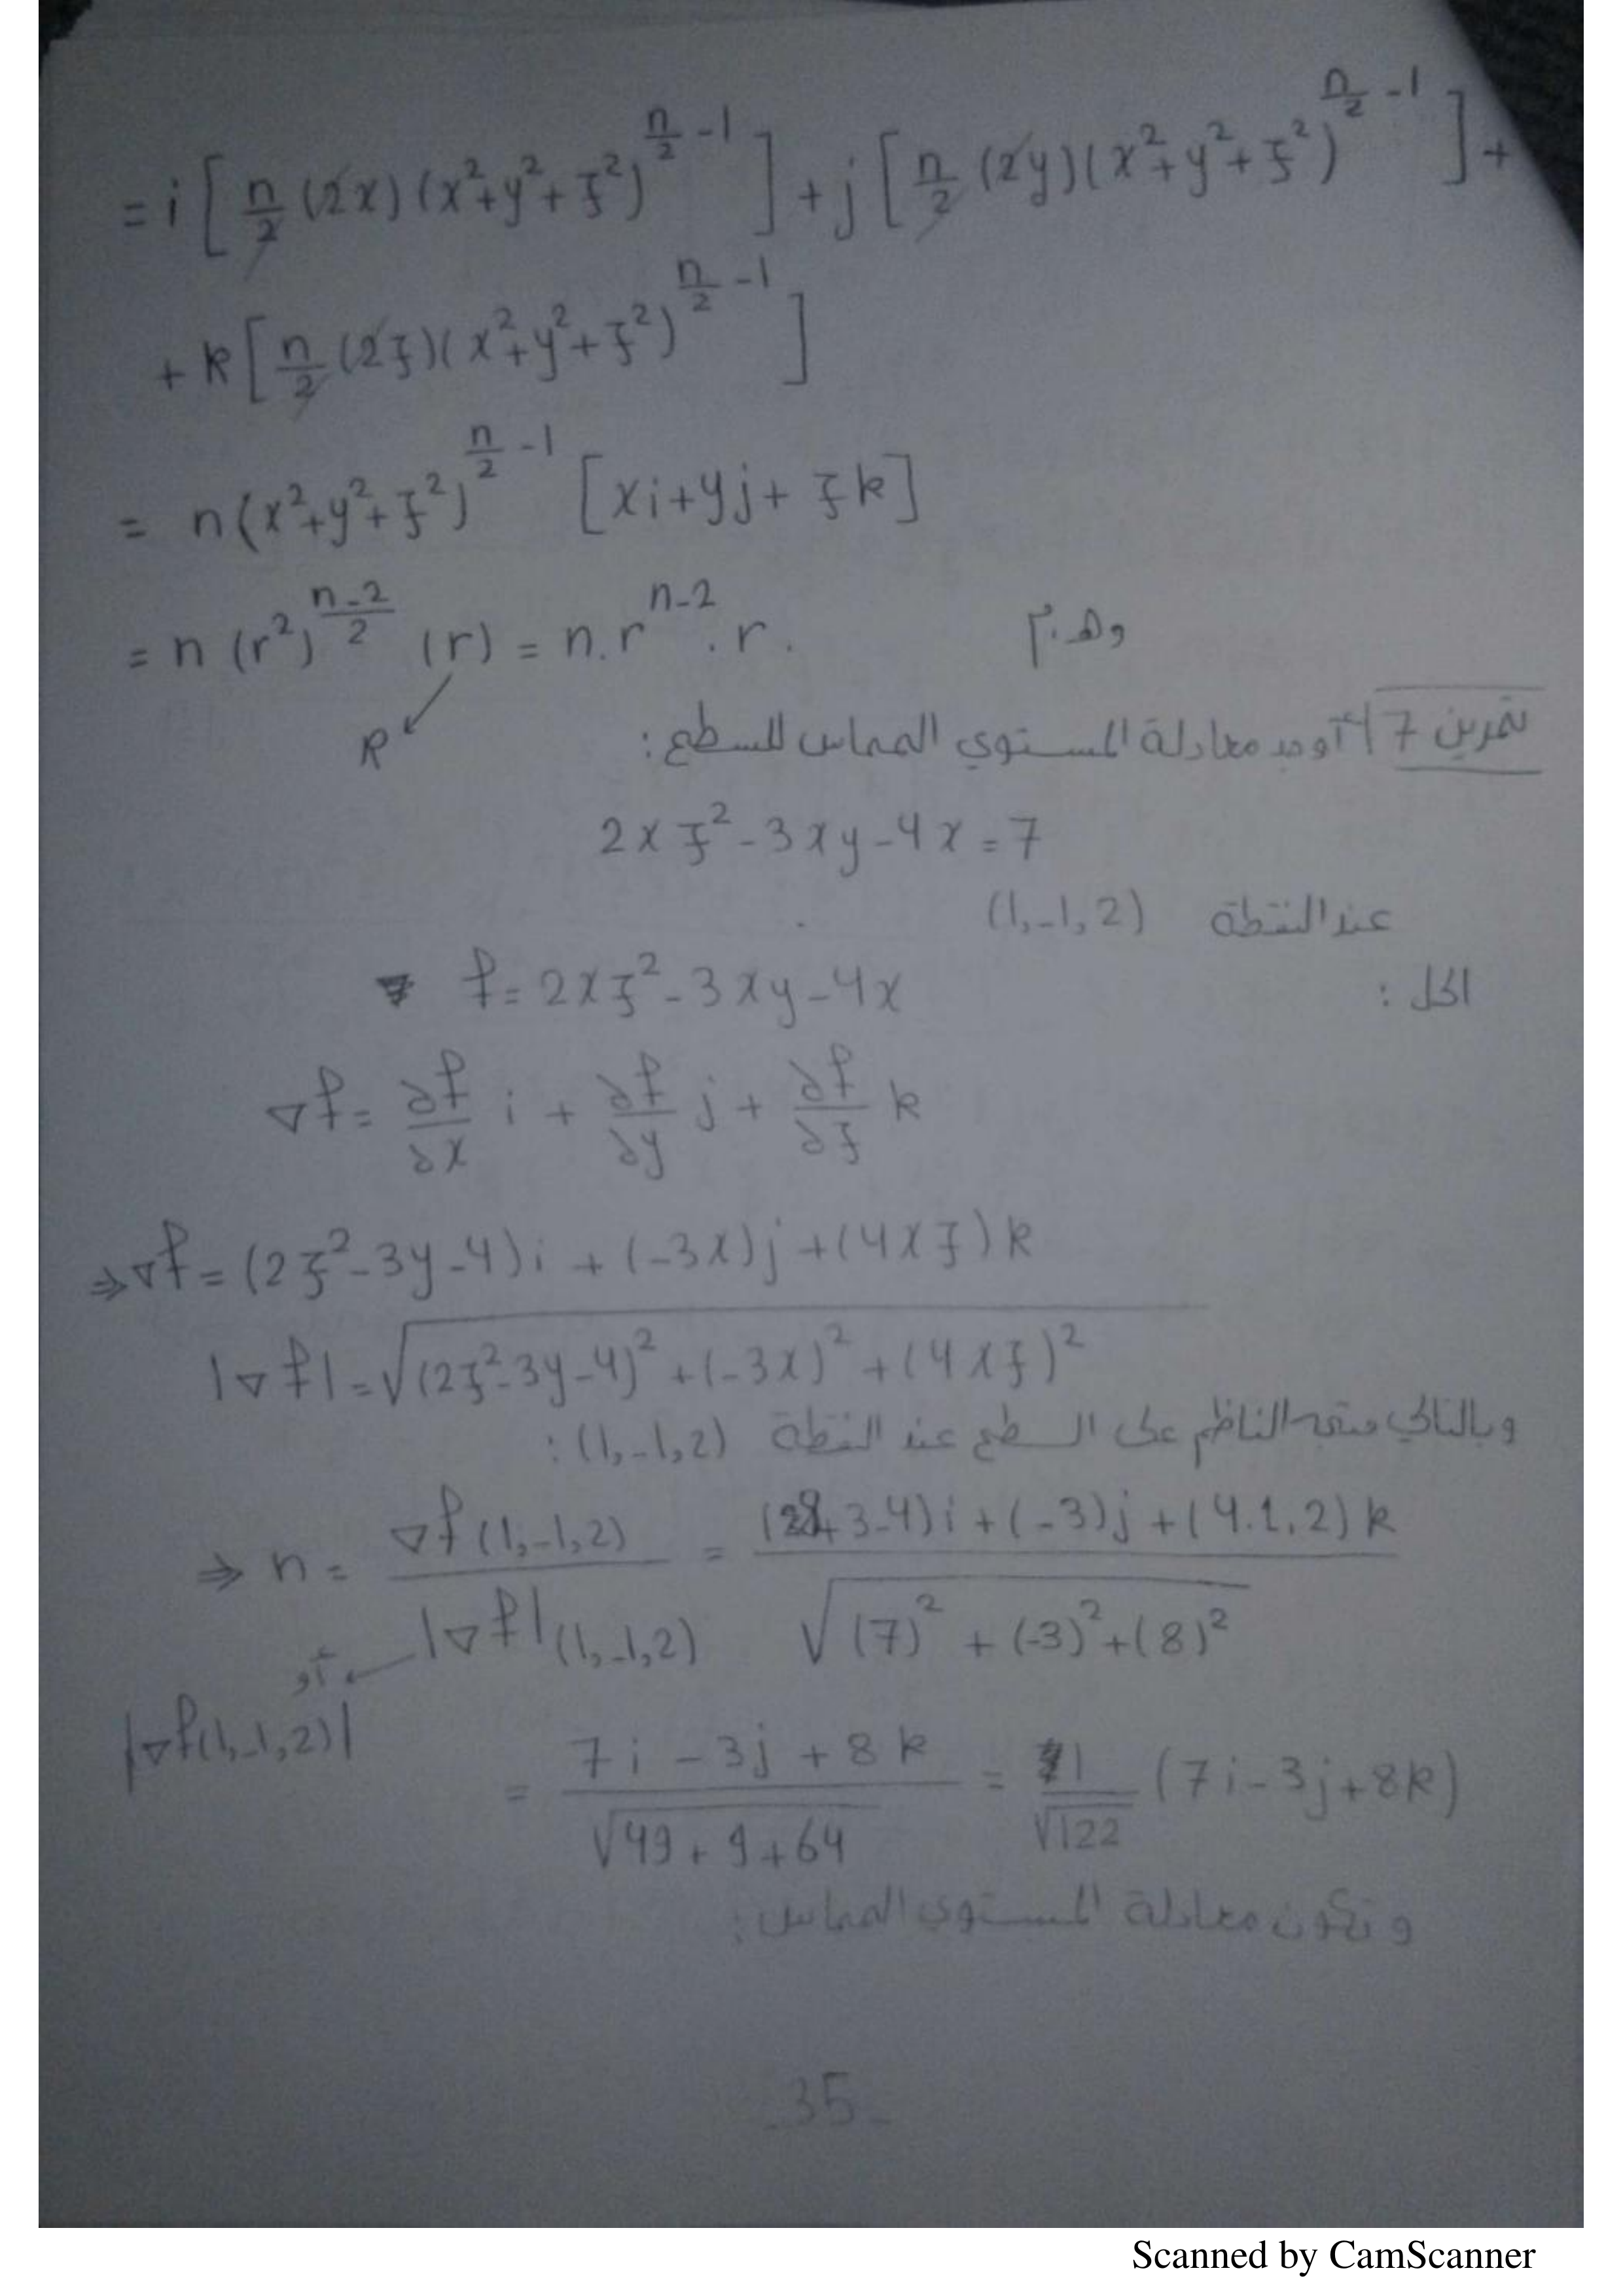 = i [ n/2 (2x) (x²+y²+z²)^(n/2 -1) ] + j [ n/2 (2y) (x²+y²+z²)^(n/2 -1) ] +
+ k [ n/2 (2z) (x²+y²+z²)^(n/2 -1) ]
= n (x²+y²+z²)^(n/2 -1) [xi+yj+zk]
= n (r²)^((n-2)/2) (r) = n.r^(n-2) . r . وهـ.م
R
تمرين 7 أوجد معادلة المستوي المماس للسطح :
2xz² - 3xy - 4x = 7
عند النقطة (1,-1,2)
الحل : f = 2xz² - 3xy - 4x
∇f = ∂f/∂x i + ∂f/∂y j + ∂f/∂z k
⇒ ∇f = (2z² - 3y - 4) i + (-3x) j + (4xz) k
|∇f| = √((2z² - 3y - 4)² + (-3x)² + (4xz)²)
وبالتالي متجه الناظم على السطح عند النقطة (1,-1,2) :
⇒ n = ∇f(1,-1,2) / |∇f|(1,-1,2) = ((8+3-4) i + (-3) j + (4.1.2) k) / √((7)² + (-3)² + (8)²)
أو
|∇f(1,-1,2)|
= (7i - 3j + 8k) / √(49 + 9 + 64) = 1/√122 (7i - 3j + 8k)
وتكون معادلة المستوي المماس :
-35-
Scanned by CamScanner